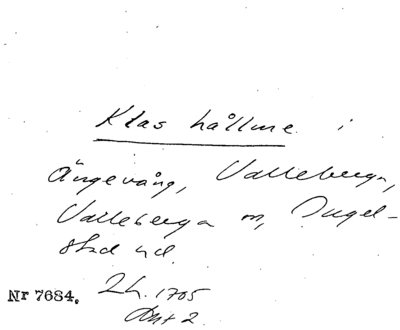 Klas hållme i
Ängevång, Valleberga,
Valleberga sn, Ingel-
stad hd.
Nr 7684. 2h. 1705
Akt 2.